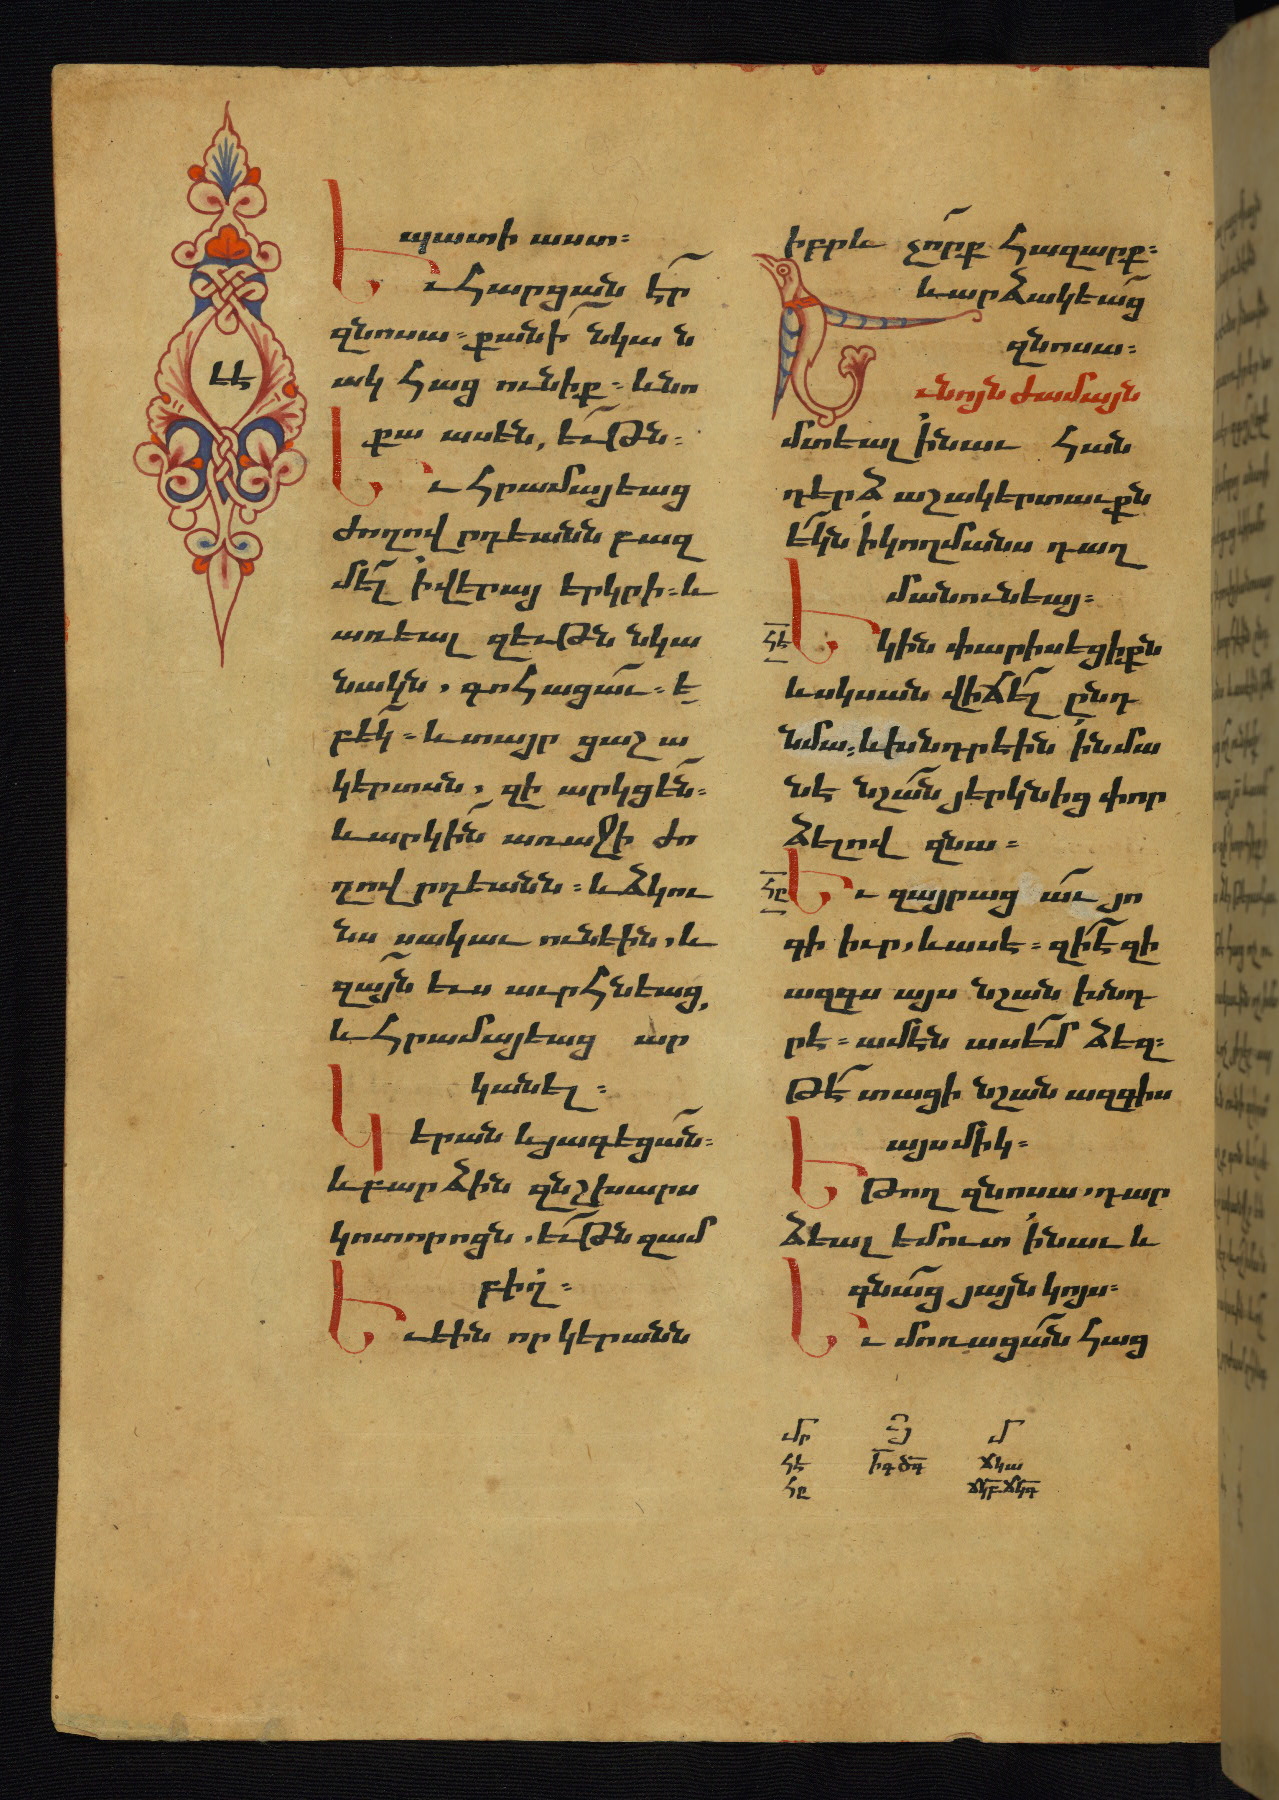 Եպատի աստ։
Եւ հարցան էր
զնոսա. քանի՞ նկա ն
ակ հաց ունիք. և նո
քա ասեն, եւթն։
Եւ հրամայեաց
ժողովրդեանն բազ
մել ի վերայ երկրի. և
առեալ զեւթն նկա
նակն, գոհացաւ. է
բեկ. և տայր ցաշա
կերտսն, զի արկցեն.
և արկին առաջի ժո
ղովրդեանն. և ձկու
նս սակաւ ունէին, և
զայն ևս աւրհնեաց,
և հրամայեաց ար
կանել։
Կերան և յագեցան։
և բարձին զնշխարս
կոտորոցն, եւթն զամ
բիղ։
Եւ էին որ կերանն
իբրև չորք հազարք։
և արձակեաց
զնոսա։
Եւ նոյնժամայն
մտեալ ի նաւ հան
դերձ աշակերտաւքն
եկն ի կողմանս դաղ
մանունեայ։
հէ Եկին փարիսեցիքն
և սկսան վիճել ընդ
նմա. և խնդրէին ի նմա
նէ նշան յերկնից փոր
ձելով զնա։
հը Եւ զայրացաւ յո
գի իւր, և ասէ. զի՞ է զի
ազգս այս նշան խնդ
րէ. ամէն ասեմ ձեզ.
թէ տացի նշան ազգիս
այսմիկ։
Եթող զնոսա, դար
ձեալ եմուտ ի նաւ և
գնաց յայն կոյս։
Եւ մոռացան հաց
մր մ
հէ իգ ծգ ճկա
հը ճկբ ճկգ